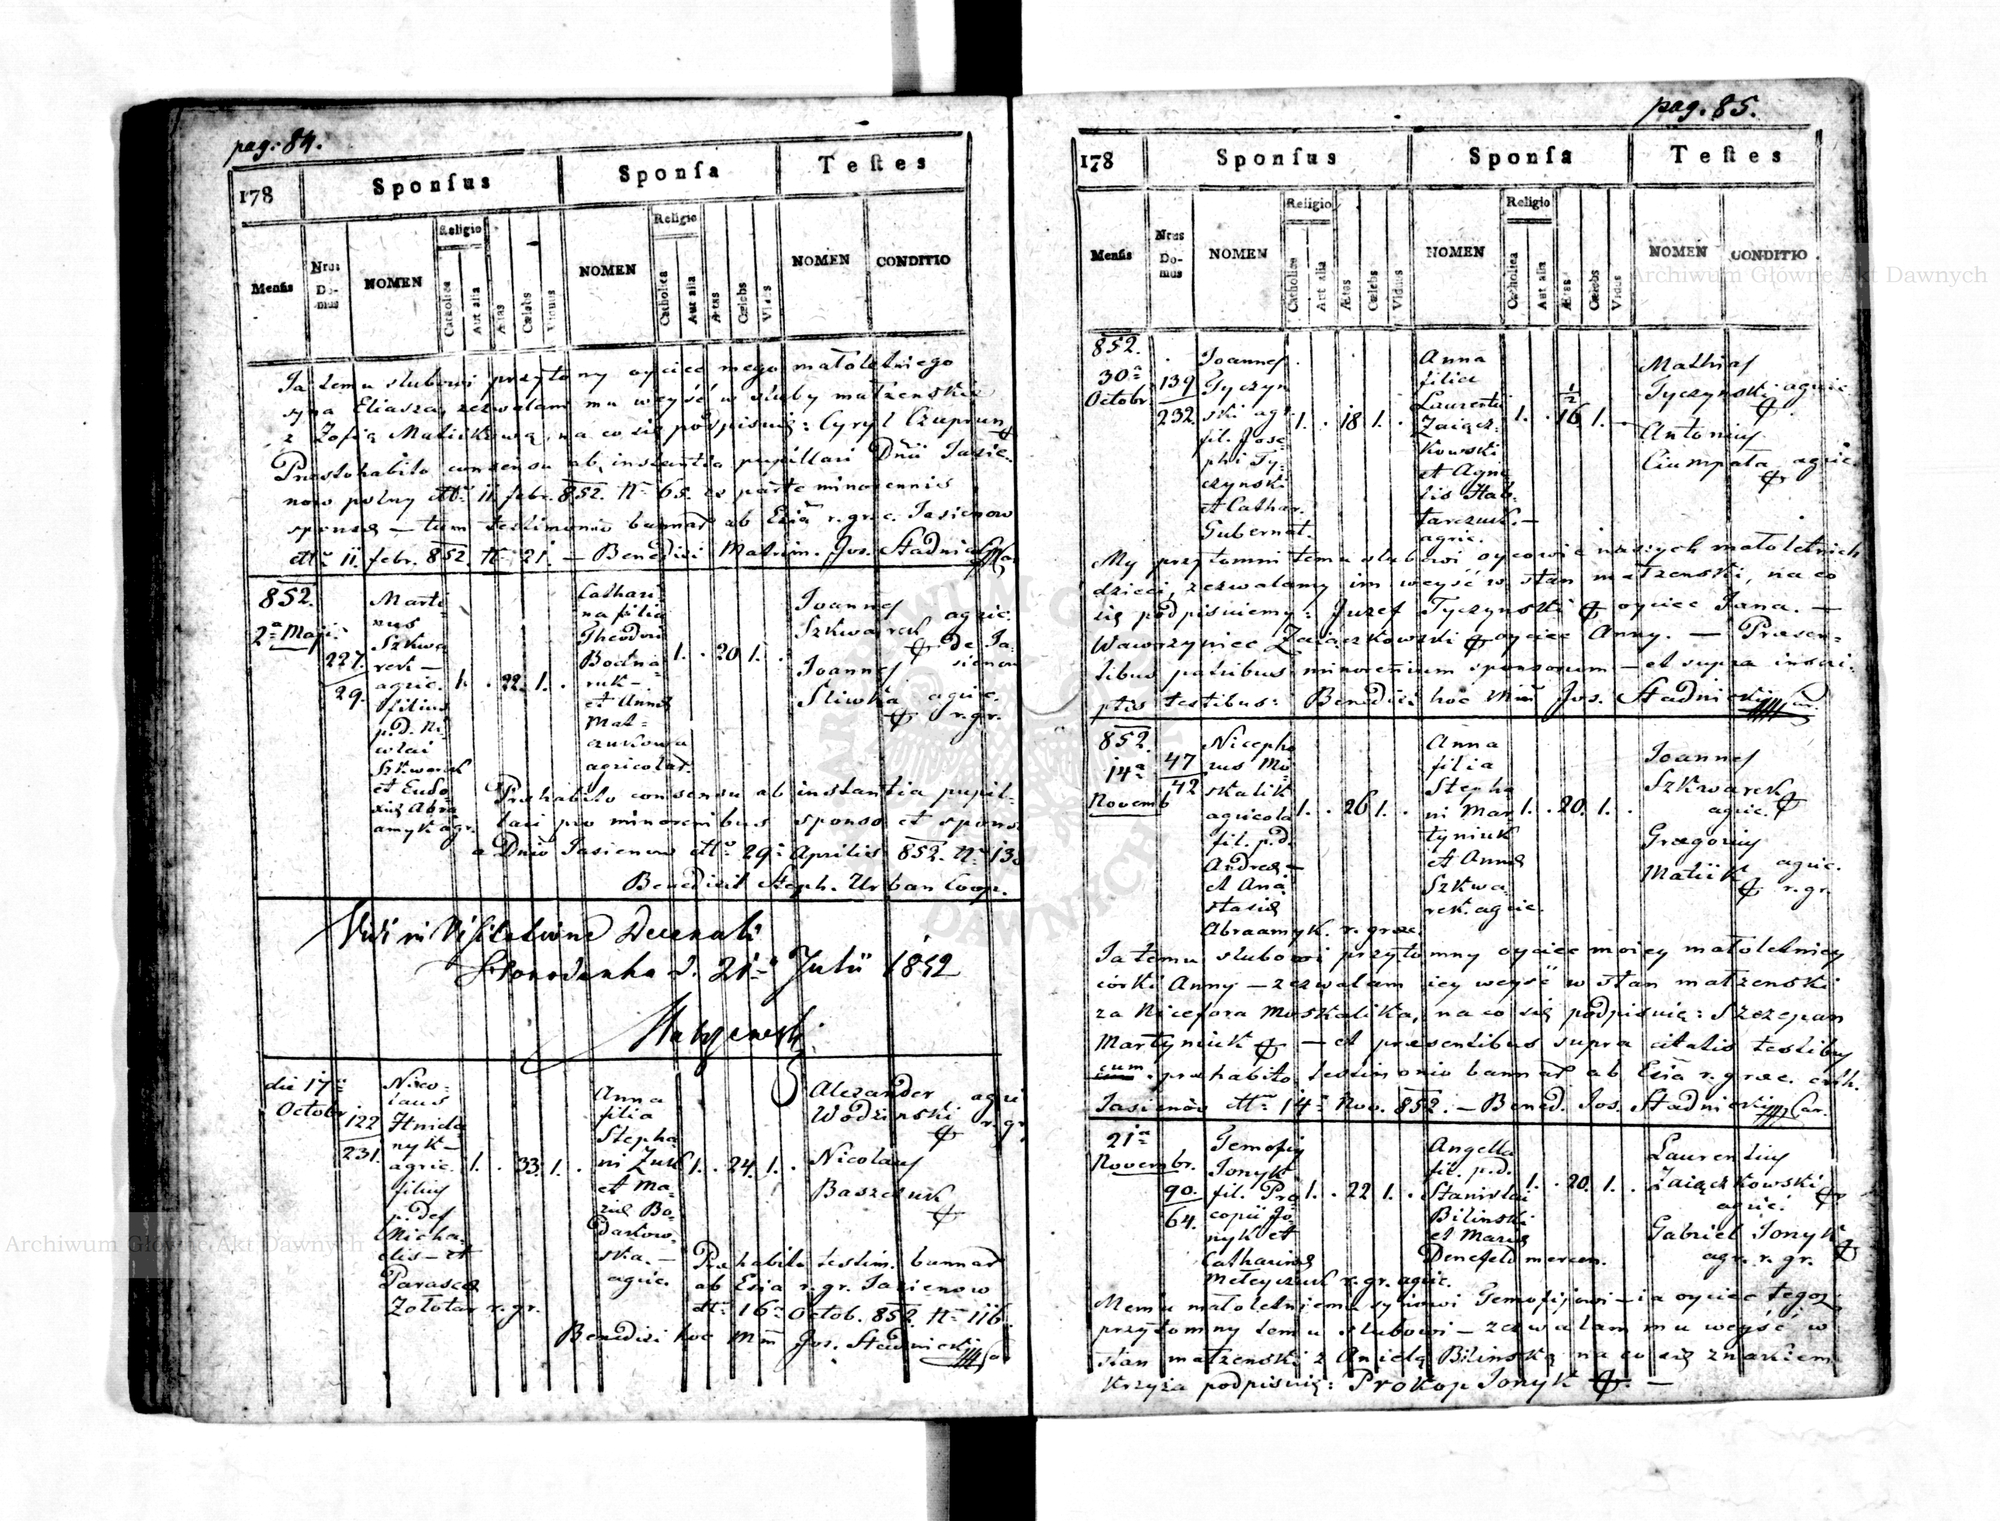 pag. 84.
178
Sponſus
Sponſa
Teſtes
Menſis
Nrus Do-mus
NOMEN
Religio
Catholica
Aut alia
Ætas
Cœlebs
Viduus
NOMEN
Religio
Catholica
Aut alia
Ætas
Cœlebs
Vidua
NOMEN
CONDITIO
Ja temu slubowi przytomny oyciec mego małoletniego
syna Eliasza, zezwalam mu weyść w śluby małżenskie
z Zofią Maliikową, na co się podpisuię: Cyryl Czaprun
Praehabito consensu ab instantia pupillari Dnii Jasie-
now polny dtto 11. febr. 852. N. 65. ex parte minorennis
sponsae — tum testimonio bannor ab Ecia r. gr. c. Jasienow
dtto 11. febr. 852. N. 21. — Benedixi Matrim. Jos. Stadnicki
852.
2a Maji.
227.
29.
Marti-
nus
Szkwa
rek —
agric.
filius
p. d. Ni-
colai
Szkwarek
et Eudo
xiæ Abra
amyk agr.
1. . 22. 1. .
Cathari-
na filia
Theodori
Bodna
ruk —
et Annæ
Mat-
zurkowa
agricolar.
1. . 20. 1. .
Joannes
Szkwarek agric.
de Ja-
sienow
Joannes
Sliwka agric.
r. gr.
Praehabito consensu ab instantia pupil-
lari pro minorenibus sponso et sponsa
a Dnio Jasienow dtto 29. Aprilis 852. N. 13
Benedixit Steph. Urban Coop.
Vidi in Visitatione Decanali
d. 21 Julii 1852
die 17a
Octobr.
122
231.
Nico-
laus
Hnida
nyk —
agric.
filius
p. def.
Micha-
elis — et
Parascæ
Zołotar r. gr.
1. . 33. 1. .
Anna
filia
Stepha
ni Zuk
et Ma-
riæ Bo-
darkow-
ska. —
agric.
1. . 24. 1. .
Alexander agri
Wodzinski r. gr.
Nicolaus
Baszczuk
Praehabito testim. bannor
ab Ecia r. gr. Jasienow
dtto 16. Octob. 852. N. 116.
Benedixi hoc Mm Jos. Stadnicki
pag. 85.
178
Sponſus
Sponſa
Teſtes
Menſis
Nrus Do-mus
NOMEN
Religio
Catholica
Aut alia
Ætas
Cœlebs
Viduus
NOMEN
Religio
Catholica
Aut alia
Ætas
Cœlebs
Vidua
NOMEN
CONDITIO
852.
30a
Octobr.
139
232.
Joannes
Tyczyn
ski agr.
fil. Jose
phi Ty-
czynski
et Cathar.
Gubernat.
1. . 18 1. .
Anna
filia
Laurentii
Zaiącz-
kowski
et Agne
tis Hab-
tarczuk. —
agric.
1. . 16 ½ 1. .
Mathias
Tyczynski agric.
Antonius
Ciumpała agric.
My przytomni temu slubowi oycowie naszych małoletnich
dzieci, zezwalamy im weyść w stan małżenski, na co
się podpisuiemy: Juzef Tyczynski oyciec Jana. —
Wawrzyniec Zaiączkowski oyciec Anny. — Præsen-
tibus patribus minorenium sponsorum — et supra inscri-
ptis testibus: Benedixi hoc Mm Jos. Stadnicki
852.
14a
Novemb
47
42
Nicepho
rus Mo-
skalik
agricola
fil. p. d.
Andreæ —
et Ana
stasiæ
Abraamyk. r. græc.
1. . 26 1. .
Anna
filia
Stepha
ni Mar
tyniuk
et Annæ
Szkwa
rek. agric.
1. . 20. 1. .
Joannes
Szkwarek
agric.
Grzegorius
Maliik agric.
r. gr.
Ja temu slubowi przytomny oyciec moiey małoletniey
córki Anny — zezwalam iey weyść w stan małżenski
za Nicefora Moskalika, na co się podpisuię: Szczepan
Martyniuk — et præsentibus supra citatis testibus
cum præhabito testimonio bannor ab Ecia r. græc. cath.
Jasienów dtto 14. Nov. 852. — Bened. Jos. Stadnicki
21a
Novembr.
90.
64.
Temofij
Jonyk
fil. Pro
copii Jo-
nyk et
Catharinæ
Mełeyczuk r. gr. agric.
1. . 22 1. .
Angella
fil. p. d.
Stanislai
Bilinski
et Mariæ
Denefeld mercen.
1. . 20. 1. .
Laurentius
Zaiączkowski
agric.
Gabriel Jonyk
agr. r. gr.
Memu małoletniemu synowi Temofijowi — ia oyciec tegoz
przytomny temu slubowi — zezwalam mu weyść w
stan małżenski z Anielą Bilinską na co się znakiem
krzyża podpisuię: Prokop Jonyk —
Archiwum Główne Akt Dawnych
Archiwum Główne Akt Dawnych
ARCHIWUM GŁÓWNE AKT DAWNYCH